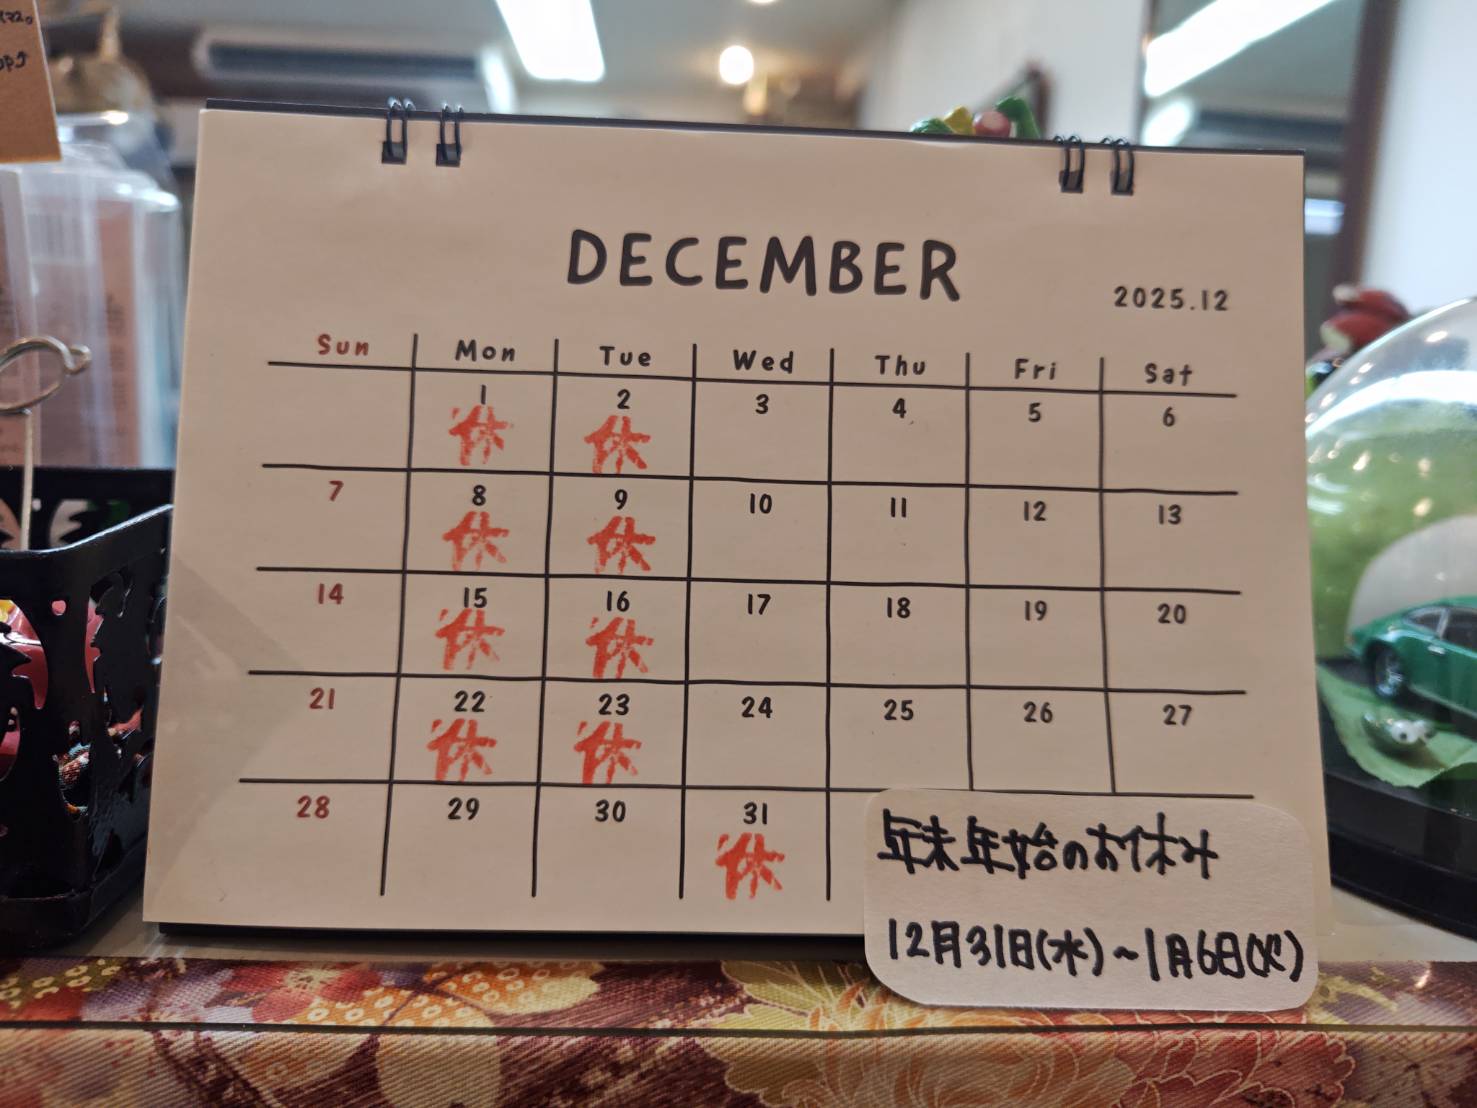 DECEMBER
2025.12
Sun Mon Tue Wed Thu Fri Sat
1 2 3 4 5 6
休 休
7 8 9 10 11 12 13
休 休
14 15 16 17 18 19 20
休 休
21 22 23 24 25 26 27
休 休
28 29 30 31
休
年末年始のお休み
12月31日(水)~1月6日(火)